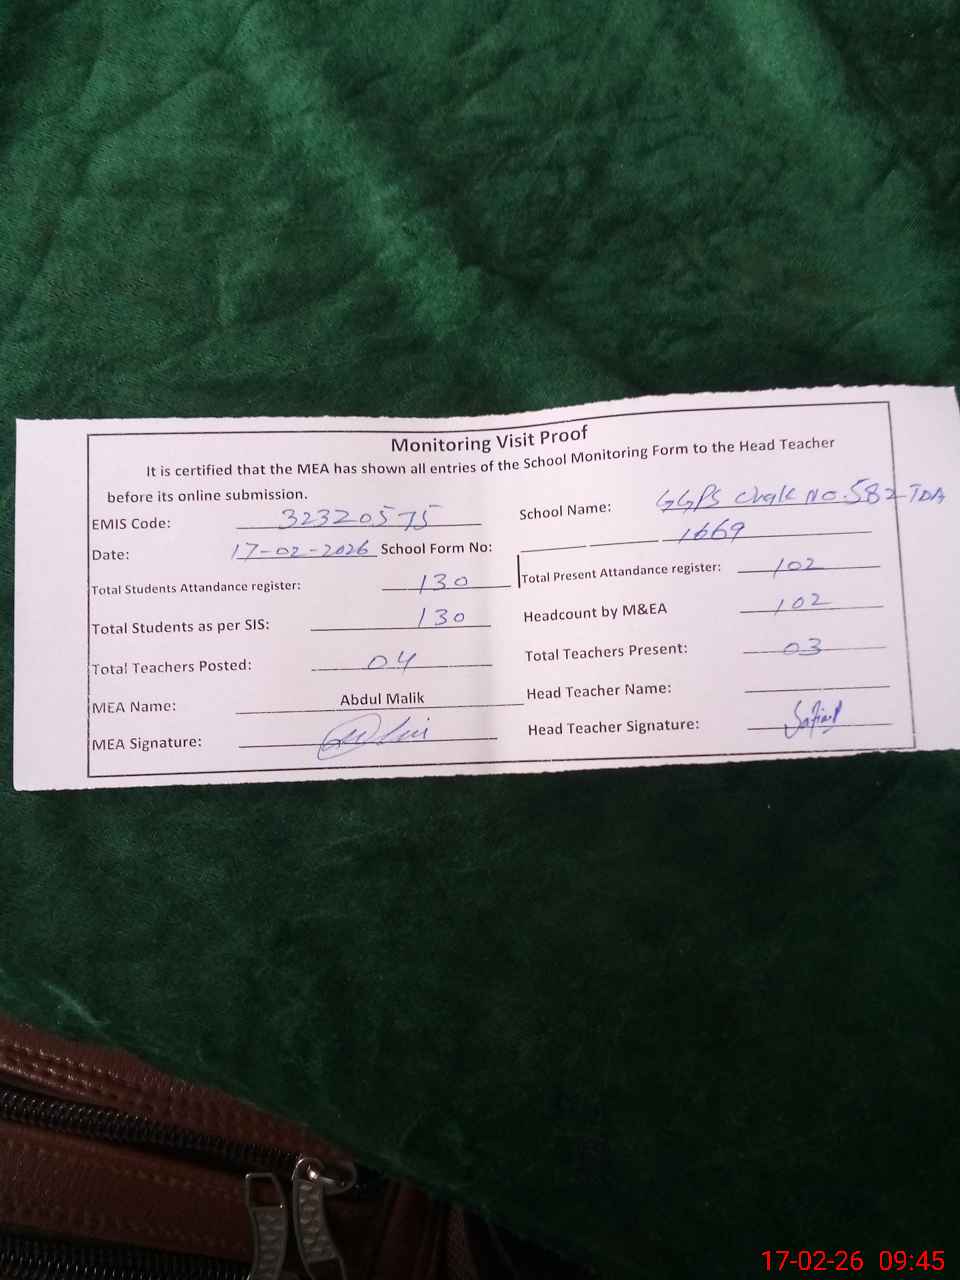 Monitoring Visit Proof
It is certified that the MEA has shown all entries of the School Monitoring Form to the Head Teacher
before its online submission.
EMIS Code: 32320575 School Name: GGPS Chak No. 582 TDA
Date: 17-02-2026 School Form No: 1669
Total Students Attandance register: 130 Total Present Attandance register: 102
Total Students as per SIS: 130 Headcount by M&EA 102
Total Teachers Posted: 04 Total Teachers Present: 03
MEA Name: Abdul Malik Head Teacher Name:
MEA Signature: Head Teacher Signature:
17-02-26 09:45